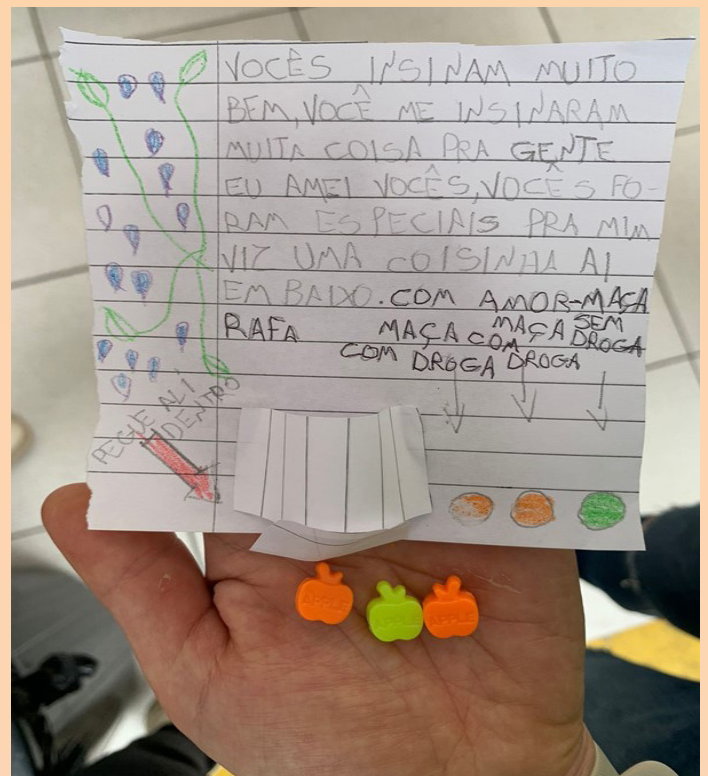 VOCÊS INSINAM MUITO
BEM, VOCÊ ME INSINARAM
MUITA COISA PRA GENTE
EU AMEI VOCÊS, VOCÊS FO-
RAM ESPECIAIS PRA MIM
VIZ UMA COISINHA AI
EMBAIXO. COM AMOR-
RAFA
MAÇA COM DROGA
MAÇA COM DROGA
MAÇA SEM DROGA
PEGUE ALI
DENTRO
APPLE
APPLE
APPLE